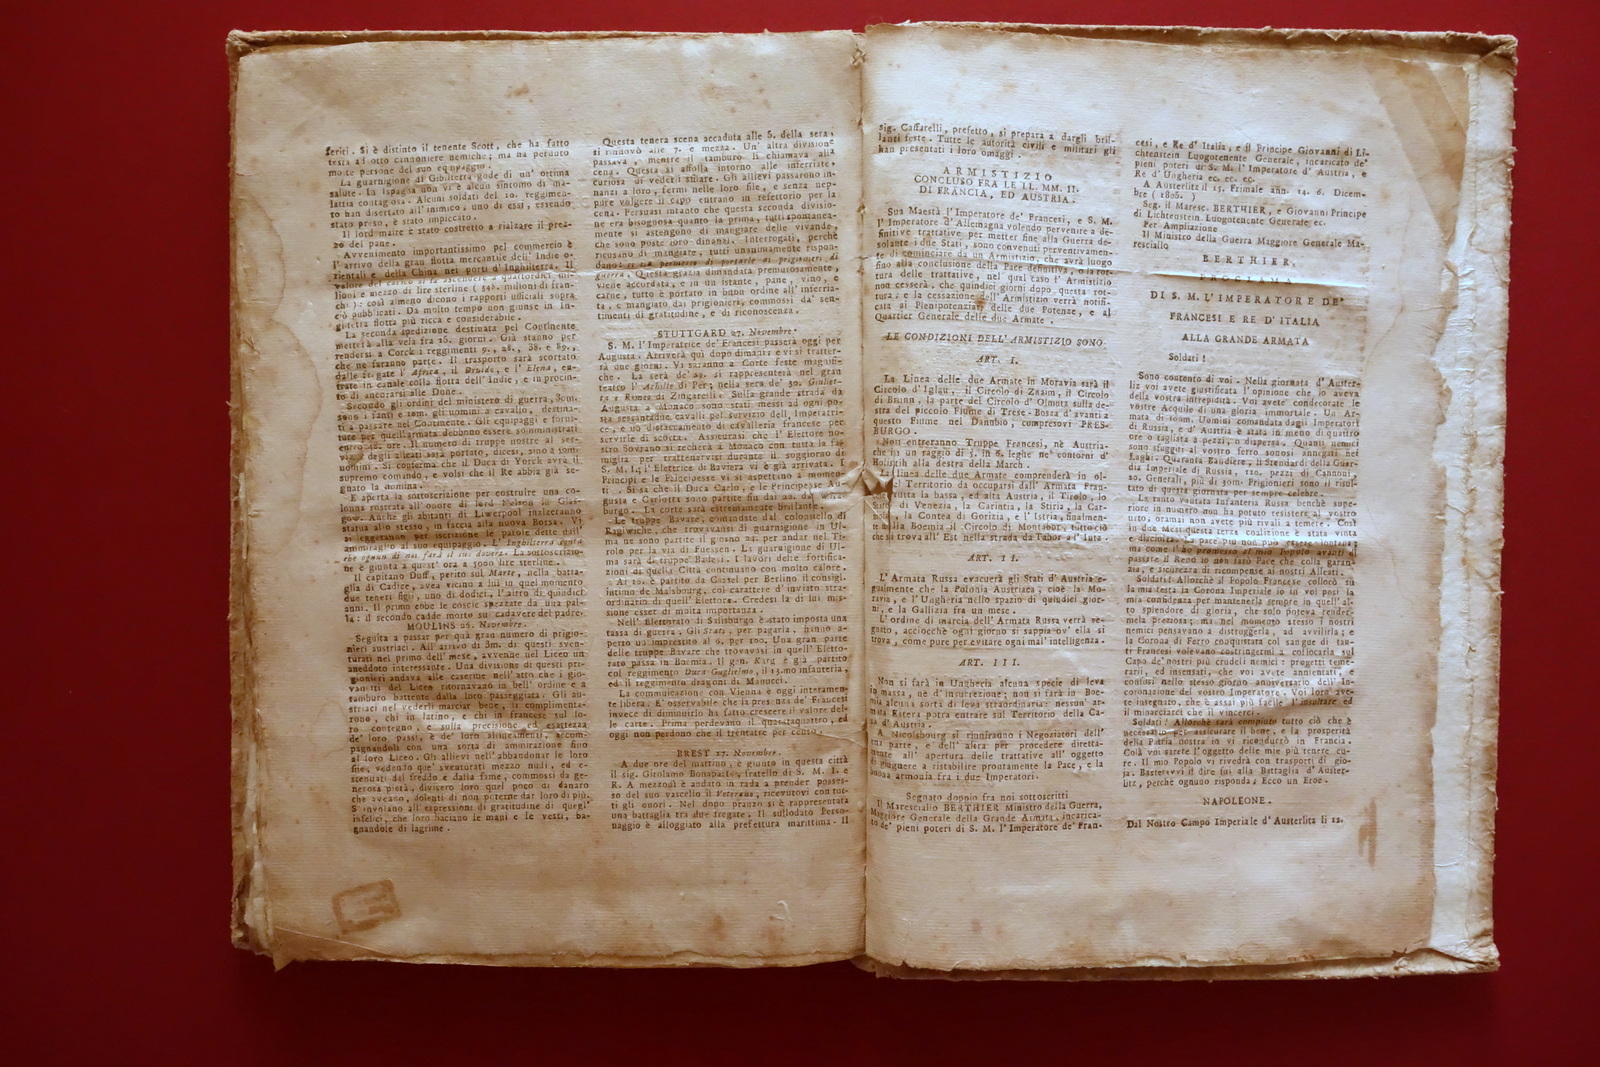 feriti. Si è distinto il tenente Scott, che ha fatto
testa ad otto cannoniere nemiche; ma ha perduto
molte persone del suo equipaggio.
La guarnigione di Gibilterra gode di un' ottima
salute. In Ispagna non vi è alcun sintomo di ma-
lattia contagiosa. Alcuni soldati del 10. reggimen-
to han disertato all'inimico, uno di essi, essendo
stato preso, è stato impiccato.
Il lord maire è stato costretto a rialzare il prez-
zo del pane.
Avvenimento importantissimo pel commercio è
l' arrivo della gran flotta mercantile dell' Indie o-
rientali e della China nei porti d' Inghilterra. Il
valore del carico si fa ascendere a quattordici mi-
lioni e mezzo di lire sterline ( 348. milioni di fran-
chi ): così almeno dicono i rapporti ufficiali sopra
ciò pubblicati. Da molto tempo non giunse in In-
ghilterra flotta più ricca e considerabile.
La seconda spedizione destinata pel Continente
metterà alla vela fra 16. giorni. Già stanno per
rendersi a Cork i reggimenti 9., 28., 38. e 89.,
che ne faranno parte. Il trasporto sarà scortato
dalle fregate l' Africa, il Druide, e l' Elena, en-
trate in canale colla flotta dell' Indie, e in procin-
to di ancorarsi alle Dune.
Secondo gli ordini del ministero di guerra, 30m.
sono i fanti e 10m. gli uomini a cavallo, destina-
ti a passare nel Continente. Gli equipaggi e forni-
ture per quell'armata debbono essere somministrati
entro 48. ore. Il numero di truppe nostre al ser-
vizio degli alleati sarà portato, dicesi, sino a
uomini. Si conferma che il Duca di Yorck avrà il
supremo comando, e volsi che il Re abbia già se-
gnato la nomina.
È aperta la sottoscrizione per costruire una co-
lonna rostrata all' onore di lord Nelson in Glas-
gow. Anche gli abitanti di Liwerpool inalzeranno
statua allo stesso, in faccia alla nuova Borsa. Vi
si leggeranno per iscrizione le parole dette dall'
ammiraglio al suo equipaggio. L' Inghilterra conta
che ognun di noi farà il suo dovere. La sottoscrizio-
ne è giunta a quest' ora a 3000 lire sterline.
Il capitano Duff, perito sul Marte, nella batta-
glia di Cadice, avea vicino a lui in quel momento
due teneri figli, uno di dodici, l'altro di quindici
anni. Il primo ebbe le coscie spezzate da una pal-
la: il secondo cadde morto su cadavere del padre.
MOULINS 26. Novembre.
Seguita a passar per quà gran numero di prigio-
nieri austriaci. All' arrivo di 3m. di questi sven-
turati nel primo dell' mese, avvenne nel Liceo un
aneddoto interessante. Una divisione di questi pri-
gionieri andava alle caserme nell' atto che i gio-
vanitti del Liceo ritornavano in bell' ordine e a
tamburo battente dalla loro passeggiata. Gli au-
striaci nel vederli marciar bene, li complimenta-
rono, chi in latino, e chi in francese sul lo-
ro contegno, e sulla precisione ed esattezza
de' loro passi, e de' loro allineamenti, accom-
pagnandoli con una sorta di ammirazione fino
al loro Liceo. Gli allievi nell' abbandonar le loro
file, vedendo que' sventurati mezzo nudi, ed e-
stenuati dal freddo e dalla fame, commossi da ge-
nerosa pietà, divisero loro quel poco di danaro
che aveano, dolenti di non poterne dar loro di più.
S'involano all'espressioni di gratitudine di quegl'
infelici, che loro baciano le mani e le vesti, ba-
gnandole di lagrime.
Questa tenera scena accaduta alle 5. della sera,
si rinnovò alle 7. e mezza. Un' altra divisione
passava, mentre il tamburo li chiamava alla
cena. Questa si affolla intorno alle inferriate,
curiosa di vederli sfilare. Gli allievi passarono in-
nanzi a loro, fermi nelle loro file, e senza nep-
pure volgere il capo entrano in refettorio per la
cena. Persuasi intanto che questa seconda divisio-
ne era bisognosa quanto la prima, tutti spontanea-
mente si astengono di mangiare delle vivande,
che sono poste loro dinanzi. Interrogati, perchè
ricusano di mangiare, tutti unanimemente rispon-
dono: vi sia permesso di portarle ai prigionieri di
guerra. Questa grazia dimandata premurosamente,
viene accordata, e in un istante, pane, vino, e
carne, tutto è portato in buon ordine all' inferria-
ta, e mangiato dai prigionieri, commossi da' sen-
timenti di gratitudine, e di riconoscenza.
STUTTGARD 27. Novembre.
S. M. l'Imperatrice de' Francesi passerà oggi per
Augusta. Arriverà qui dopo dimani e vi si tratter-
rà due giorni. Vi saranno a Corte feste magnifi-
che. La serà de' 29. si rappresenterà nel gran
teatro l' Achille di Per; nella sera de' 30. Giuliet-
ta e Romeo di Zingarelli. Sulla grande strada da
Augusta a Monaco sono stati messi ad ogni po-
sta sessantadue cavalli pel servizio dell' Imperatri-
ce, e un distaccamento di cavalleria francese per
servirle di scorta. Assicurasi che l' Elettore no-
stro Sovrano si recherà a Monaco con tutta la fa-
miglia per trattenervisi durante il soggiorno di
S. M. I.; l' Elettrice di Baviera vi è già arrivata. I
Principi e le Principesse vi si aspettano a momen-
ti. Si sa che il Duca Carlo, e le Principesse Au-
gusta e Carlotta sono partite fin dai 22. da
burgo. La corte sarà estremamente brillante.
Le truppe Bavare, comandate dal colonnello di
Ragiwiche, che trovavansi di guarnigione in Ul-
ma ne sono partite il giorno 24. per andar nel Ti-
rolo per la via di Fuessen. La guarnigione di Ul-
ma sarà di truppe Badesi. I lavori delle fortifica-
zioni di quella Città continuano con molto calore.
Ai 16. è partito da Cassel per Berlino il consigl.
intimo de Malsbourg, col carattere d' inviato stra-
ordinario di quell' Elettore. Credesi la di lui mis-
sione esser di molta importanza.
Nell' Elettorato di Salisburgo è stato imposta una
tassa di guerra. Gli Stati, per pagarla, hanno a-
perto un imprestito al 6. per 100. Una gran parte
delle truppe Bavare che trovavasi in quell' Eletto-
rato passa in Boemia. Il gen. Karg è già partito
col reggimento Duca Guglielmo, il 13.mo infanteria,
ed il reggimento dragoni di Manucci.
La comunicazione con Vienna è oggi interamen-
te libera. E' osservabile che la presenza de' Francesi
invece di diminuirlo ha fatto crescere il valore del-
le carte. Prima perdevano il quarantaquattro, ed
oggi non perdono che il trentatre per cento.
BREST 17. Novembre.
A due ore del mattino, è giunto in questa città
il sig. Girolamo Bonaparte, fratello di S. M. I. e
R. A mezzodì è andato in rada a prender posses-
so del suo vascello il Veterano, ricevutovi con tut-
ti gli onori. Nel dopo pranzo si è rappresentata
una battaglia tra due fregate. Il sullodato Perso-
naggio è alloggiato alla prefettura marittima. Il
sig. Caffarelli, prefetto, si prepara a dargli bril-
lanti feste. Tutte le autorità civili e militari gli
han presentati i loro omaggi.
ARMISTIZIO
CONCLUSO FRA LE LL. MM. II.
DI FRANCIA, ED AUSTRIA.
Sua Maestà l'Imperatore de' Francesi, e S. M.
l'Imperatore d'Allemagna volendo pervenire a de-
finitive trattative per metter fine alla Guerra de-
solante i due Stati, sono convenuti perventivamen-
te di cominciare da un Armistizio, che avrà luogo
fino alla conclusione della Pace definitiva, o la rot-
tura delle trattative, nel qual caso l' Armistizio
non cesserà, che quindici giorni dopo questa rot-
tura; e la cessazione dell' Armistizio verrà notifi-
cata ai Plenipotenziarj delle due Potenze, e al
Quartier Generale delle due Armate.
LE CONDIZIONI DELL' ARMISTIZIO SONO
ART. I.
La Linea delle due Armate in Moravia sarà il
Circolo d'Iglau, il Circolo di Znaim, il Circolo
di Brunn, la parte del Circolo d'Olmutz sulla de-
stra del piccolo Fiume di Trese-Bosca d'avanti a
questo Fiume nel Danubio, compresovi PRES-
BURGO.
Non entreranno Truppe Francesi, nè Austria-
che in un raggio di 5. in 6. leghe ne' contorni d'
Holitch alla destra della March.
La linea delle due Armate comprenderà in ol-
Territorio da occuparsi dall' Armata Fran-
tutta la bassa, ed alta Austria, il Tirolo, lo
di Venezia, la Carintia, la Stiria, la Car-
la Contea di Gorizia, e l' Istria, finalmen-
te nella Boemia il Circolo di Montabor, tutto ciò
che si trova all' Est nella strada da Tabor a
ART. II.
L' Armata Russa evacuerà gli Stati d' Austria e-
gualmente che la Polonia Austriaca; cioè la Mo-
ravia, e l' Ungheria nello spazio di quindici gior-
ni, e la Gallizia fra un mese.
L' ordine di marcia dell' Armata Russa verrà se-
gnato, acciocchè ogni giorno si sappia ov' ella si
trova, come pure per evitare ogni mal' intelligenza.
ART. III.
Non si farà in Ungheria alcuna specie di leva
in massa, nè d' insurrezione; non si farà in Boe-
mia alcuna sorta di leva straordinaria: nessun' ar-
mata Estera potrà entrare sul Territorio della Ca-
sa d' Austria.
A Nicolsbourg si riuniranno i Negoziatori dell'
una parte, e dell' altra per procedere diretta-
mente all' apertura delle trattative all' oggetto
di giugnere a ristabilire prontamente la Pace, e la
buona armonia fra i due Imperatori.
Segnato doppio fra noi sottoscritti
Il Maresciallo BERTHIER Ministro della Guerra,
Maggiore Generale della Grande Armata, incarica-
to de' pieni poteri di S. M. l' Imperatore de' Fran-
cesi, e Re d' Italia, e il Principe Giovanni di Li-
chtenstein Luogotenente Generale, incaricato de'
pieni poteri di S. M. l' Imperatore d' Austria, e
Re d' Ungheria ec. ec. ec.
A Austerlitz il 15. Frimale ann. 14. 6. Dicem-
bre ( 1805. )
Seg. il Maresc. BERTHIER, e Giovanni Principe
di Lichtenstein. Luogotenente Generale ec.
Per Ampliazione
Il Ministro della Guerra Maggiore Generale Ma-
resciallo
BERTHIER.
PROCLAMA
DI S. M. L' IMPERATORE DE'
FRANCESI E RE D' ITALIA
ALLA GRANDE ARMATA
Soldati!
Sono contento di voi. Nella giornata d' Auster-
liz voi avete giustificata l' opinione che io aveva
della vostra intrepidità. Voi avete condecorate le
vostre Acquile di una gloria immortale. Un Ar-
mata di 100m. Uomini comandata dagli Imperatori
di Russia, e d' Austria è stata in meno di quattro
ore o tagliata a pezzi, o dispersa. Quanti nemici
sfuggiti al vostro ferro sonosi annegati nei
Laghi. Quaranta Bandiere, li Stendardi della Guar-
dia Imperiale di Russia, 120. pezzi di Cannoni,
20. Generali, più di 30m. Prigionieri sono il risul-
tato di questa giornata per sempre celebre.
La tanto vantata Infanteria Russa benchè supe-
riore in numero non ha potuto resistere al vostro
urto, oramai non avete più rivali a temere. Così
in due mesi questa terza coalizione è stata vinta
e disciolta. La pace più non può essere lontana;
ma come l' ho promesso al mio Popolo avanti di
passare il Reno io non farò Pace che colla garan-
zia, e sicurezza di ricompense ai nostri Alleati.
Soldati! Allorchè il Popolo Francese collocò su
la mia testa la Corona Imperiale io in voi posi la
mia confidenza per mantenerla sempre in quell' al-
to splendore di gloria, che solo poteva render-
mela preziosa; ma nel momento stesso i nostri
nemici pensavano a distruggerla, ad avvilirla; e
la Corona di Ferro conquistata col sangue di tan-
ti Francesi volevano costringermi a collocarla sul
Capo de' nostri più crudeli nemici: progetti teme-
rarii, ed insensati, che voi avete annientati, e
confusi nello stesso giorno anniversario dell' In-
coronazione del vostro Imperatore. Voi loro ave-
te insegnato, che è assai più facile l' insultare ed
il minacciarci che il vincerci.
Soldati! Allorchè sarà compiuto tutto ciò che è
necessario per assicurare il bene, e la prosperità
della Patria nostra io vi ricondurrò in Francia.
Colà voi sarete l' oggetto delle mie più tenere cu-
re. Il mio Popolo vi rivedrà con trasporti di gio-
ja. Basteravvi il dire fui alla Battaglia d' Auster-
litz, perchè ognuno risponda; Ecco un Eroe.
NAPOLEONE.
Dal Nostro Campo Imperiale d' Austerlitz li 12.